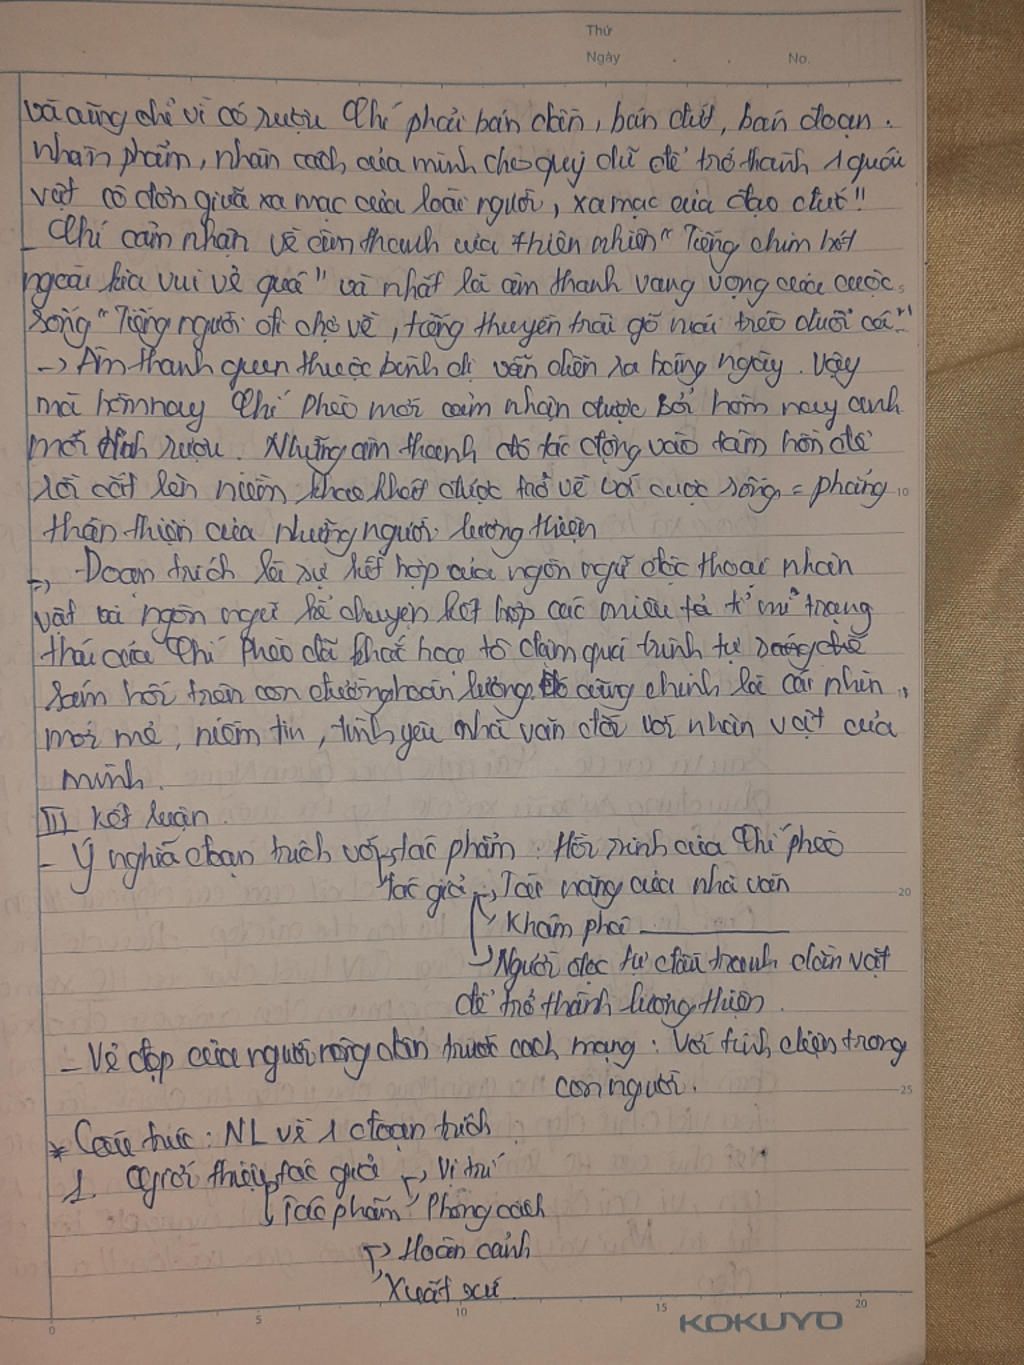 Thứ
Ngày . . No.
và cũng chỉ vì có rượu Chí phải bán dần, bán dứt, bán đoạn.
nhân phẩm, nhân cách của mình cho quỷ dữ để trở thành 1 quái
vật cô đơn giữa xa mạc của loài người, xa mạc của đạo đức"
- Chí cảm nhận về âm thanh của thiên nhiên "Tiếng chim hót
ngoài kia vui vẻ quá" và nhất là âm thanh vang vọng của cuộc
sống "Tiếng người đi chợ về, tiếng thuyền trài gõ mái trèo đuổi cá..."
-> Âm thanh quen thuộc bình dị vẫn diễn ra hàng ngày. Vậy
mà hôm nay Chí Phèo mới cảm nhận được bởi hôm nay anh
mới tỉnh rượu. Những âm thanh đó tác động vào tâm hồn để
rồi cất lên niềm khao khát được trở về với cuộc sống = phẳng 10
thân thiện của những người lương thiện
=> Đoạn trích là sự kết hợp của ngôn ngữ độc thoại nhân
vật và ngôn ngữ kể chuyện kết hợp các miêu tả tỉ mỉ trạng
thái của Chí Phèo đã khắc họa tô đậm quá trình tự
sám hối trên con đường hoàn lương. Đó cũng chính là cái nhìn
mới mẻ, niềm tin, tình yêu nhà văn đối với nhân vật của
mình.
III Kết luận.
- Ý nghĩa đoạn trích với tác phẩm: Hồi sinh của Chí phèo
tác giả -> Tài năng của nhà văn 20
-> Khám phá
-> Người đọc tự đấu tranh dằn vặt
để trở thành lương thiện.
- Vẻ đẹp của người nông dân trước cách mạng: Với tính diện trong
con người. 25
* Cấu trúc: NL về 1 đoạn trích
1. Giới thiệu tác giả -> Vị trí
Tác phẩm Phong cách
-> Hoàn cảnh
Xuất xứ
0 5 10 15 20
KOKUYO